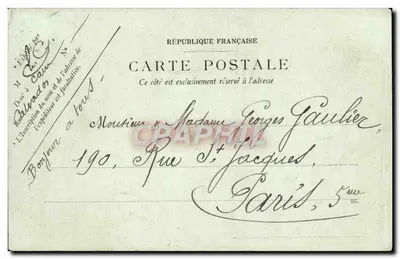 RÉPUBLIQUE FRANÇAISE
CARTE POSTALE
Ce côté est exclusivement réservé à l'adresse
Monsieur & Madame Georges Gaulier,
190, Rue St Jacques,
Paris, 5me
M
Dem' à Caen
Calvados
N°
L'Inscription du nom et de l'adresse de
l'expéditeur est facultative.
Bonjour à tous.
CARTEPOSTALE